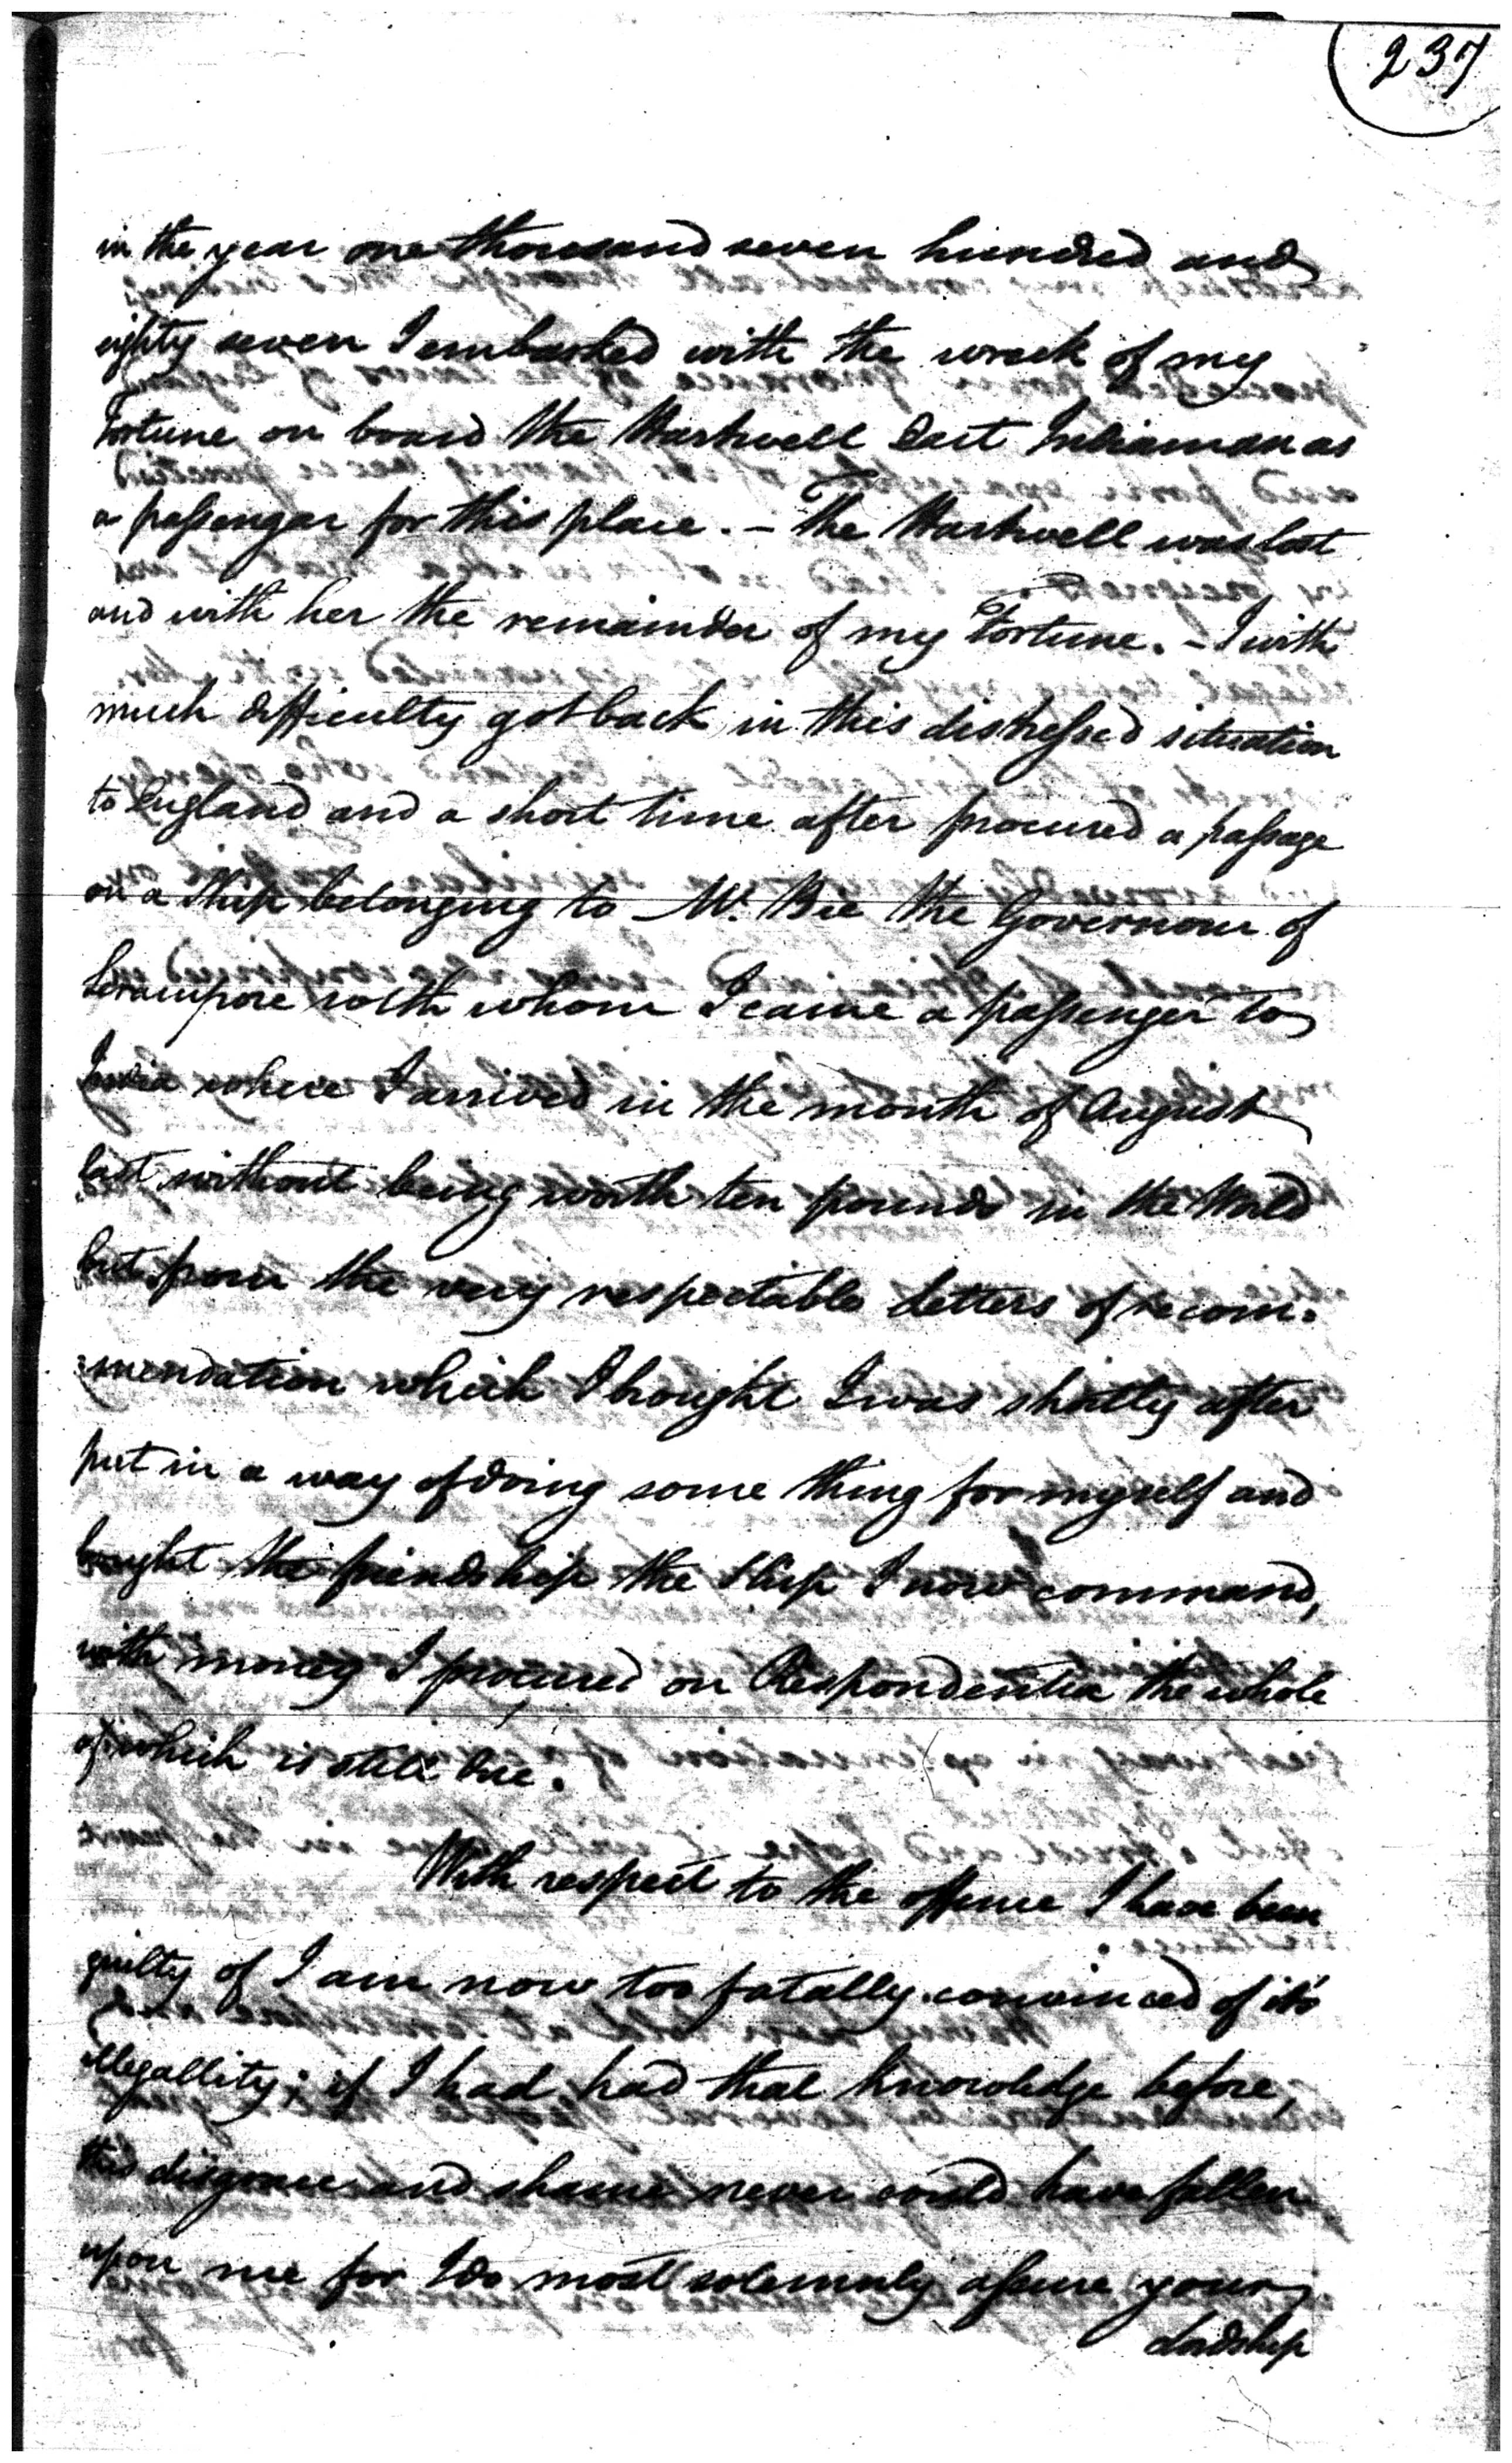 237
in the year one thousand seven hundred and
eighty seven I embarked with the wreck of my
Fortune on board the Hartwell East Indiaman as
a passengar for this place. - The Hartwell was lost
and with her the remainder of my Fortune. - I with
much difficulty got back in this distressed situation
to England and a short time after procured a passage
on a Ship belonging to Mr. Bie the Governour of
Serampore with whom I came a passenger to
India where I arrived in the month of August
last without being worth ten pounds in the World
but from the very respectable Letters of recom=
=mendation which I brought I was shortly after
put in a way of doing some thing for myself and
bought the friendship the Ship I now command,
with money I procured on Respondentia the whole
of which is still due.
With respect to the offence I have been
guilty of I am now too fatally convinced of it's
illegallity; if I had had that knowledge before,
this disgrace and shame never could have fallen
upon me for I do most solemnly assure your
Lordship